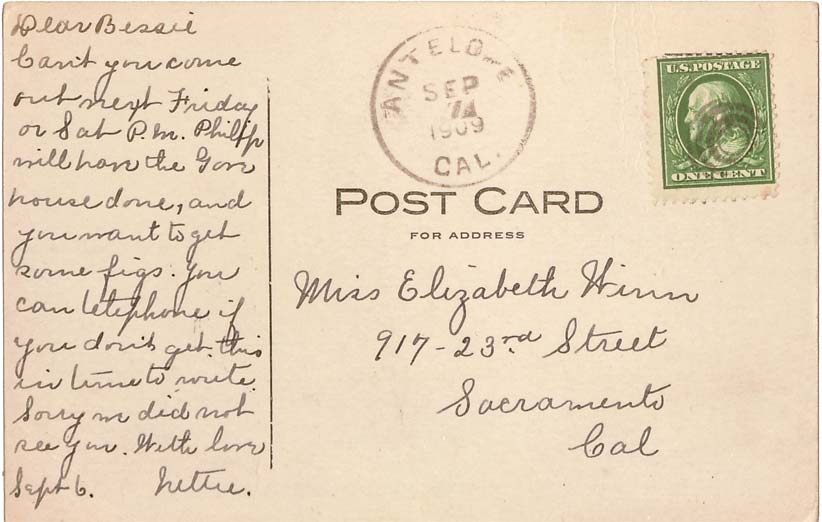 Dear Bessie
Can't you come
out next Friday
or Sat P.M. Philipp
will have the
house done, and
you want to get
some figs. You
can telephone if
you don't get this
in time to write.
Sorry we did not
see you. With love
Sept 6. Nettie.
ANTELOPE
SEP
1909
CAL.
U.S. POSTAGE
ONE CENT
POST CARD
FOR ADDRESS
Miss Elizabeth Winn
917-23rd Street
Sacramento
Cal